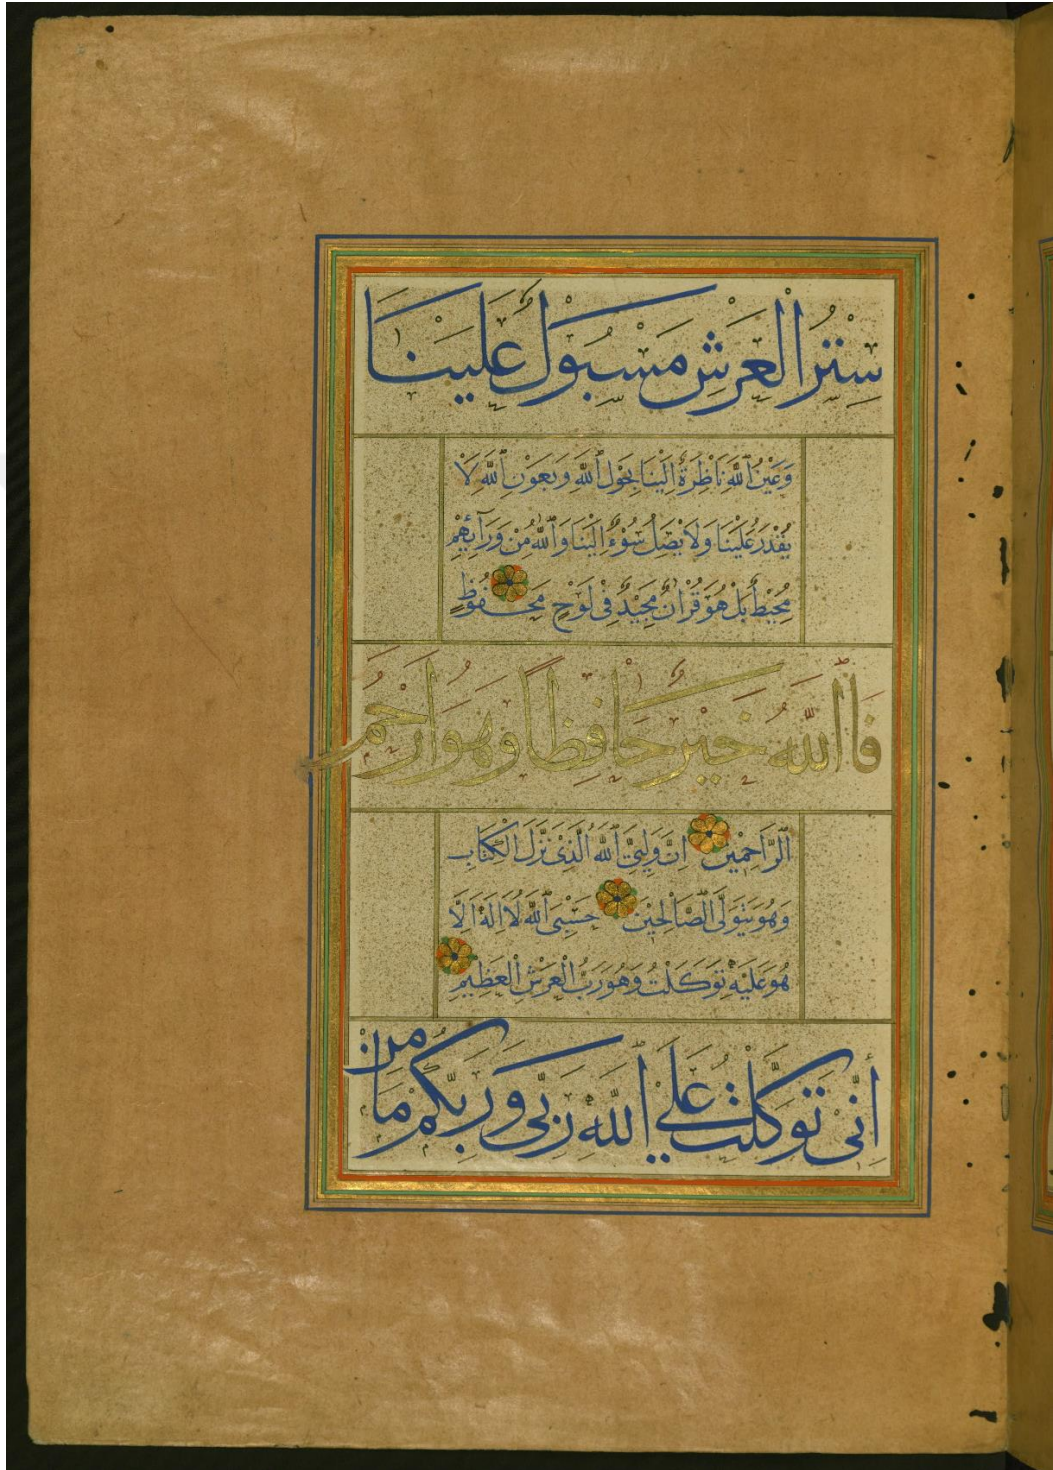 سِتْرُ العَرْشِ مَسْبُولٌ عَلَيْنَا
وَعَيْنُ اللَّهِ نَاظِرَةٌ اِلَيْنَا بِحَوْلِ اللَّهِ وَبِعَوْنِ اللَّهِ لَا
يُقْدَرُ عَلَيْنَا وَلَا يَصِلُ سُوْءٌ اِلَيْنَا وَاللَّهُ مِنْ وَرَآئِهِمْ
مُحِيْطٌ بَلْ هُوَ قُرْاٰنٌ مَجِيْدٌ فِيْ لَوْحٍ مَحْفُوْظٍ
فَاَللَّهُ خَيْرٌ حَافِظًا وَهُوَ اَرْحَمُ
الرَّاحِمِيْنَ اِنَّ وَلِيِّيَ اللَّهُ الَّذِيْ نَزَّلَ الْكِتَابَ
وَهُوَ يَتَوَلَّى الصَّالِحِيْنَ حَسْبِيَ اللَّهُ لَا اِلٰهَ اِلَّا
هُوَ عَلَيْهِ تَوَكَّلْتُ وَهُوَ رَبُّ الْعَرْشِ الْعَظِيْمِ
اِنِّي تَوَكَّلْتُ عَلَي اللَّهِ رَبِّي وَرَبِّكُمْ مَا مِنْ